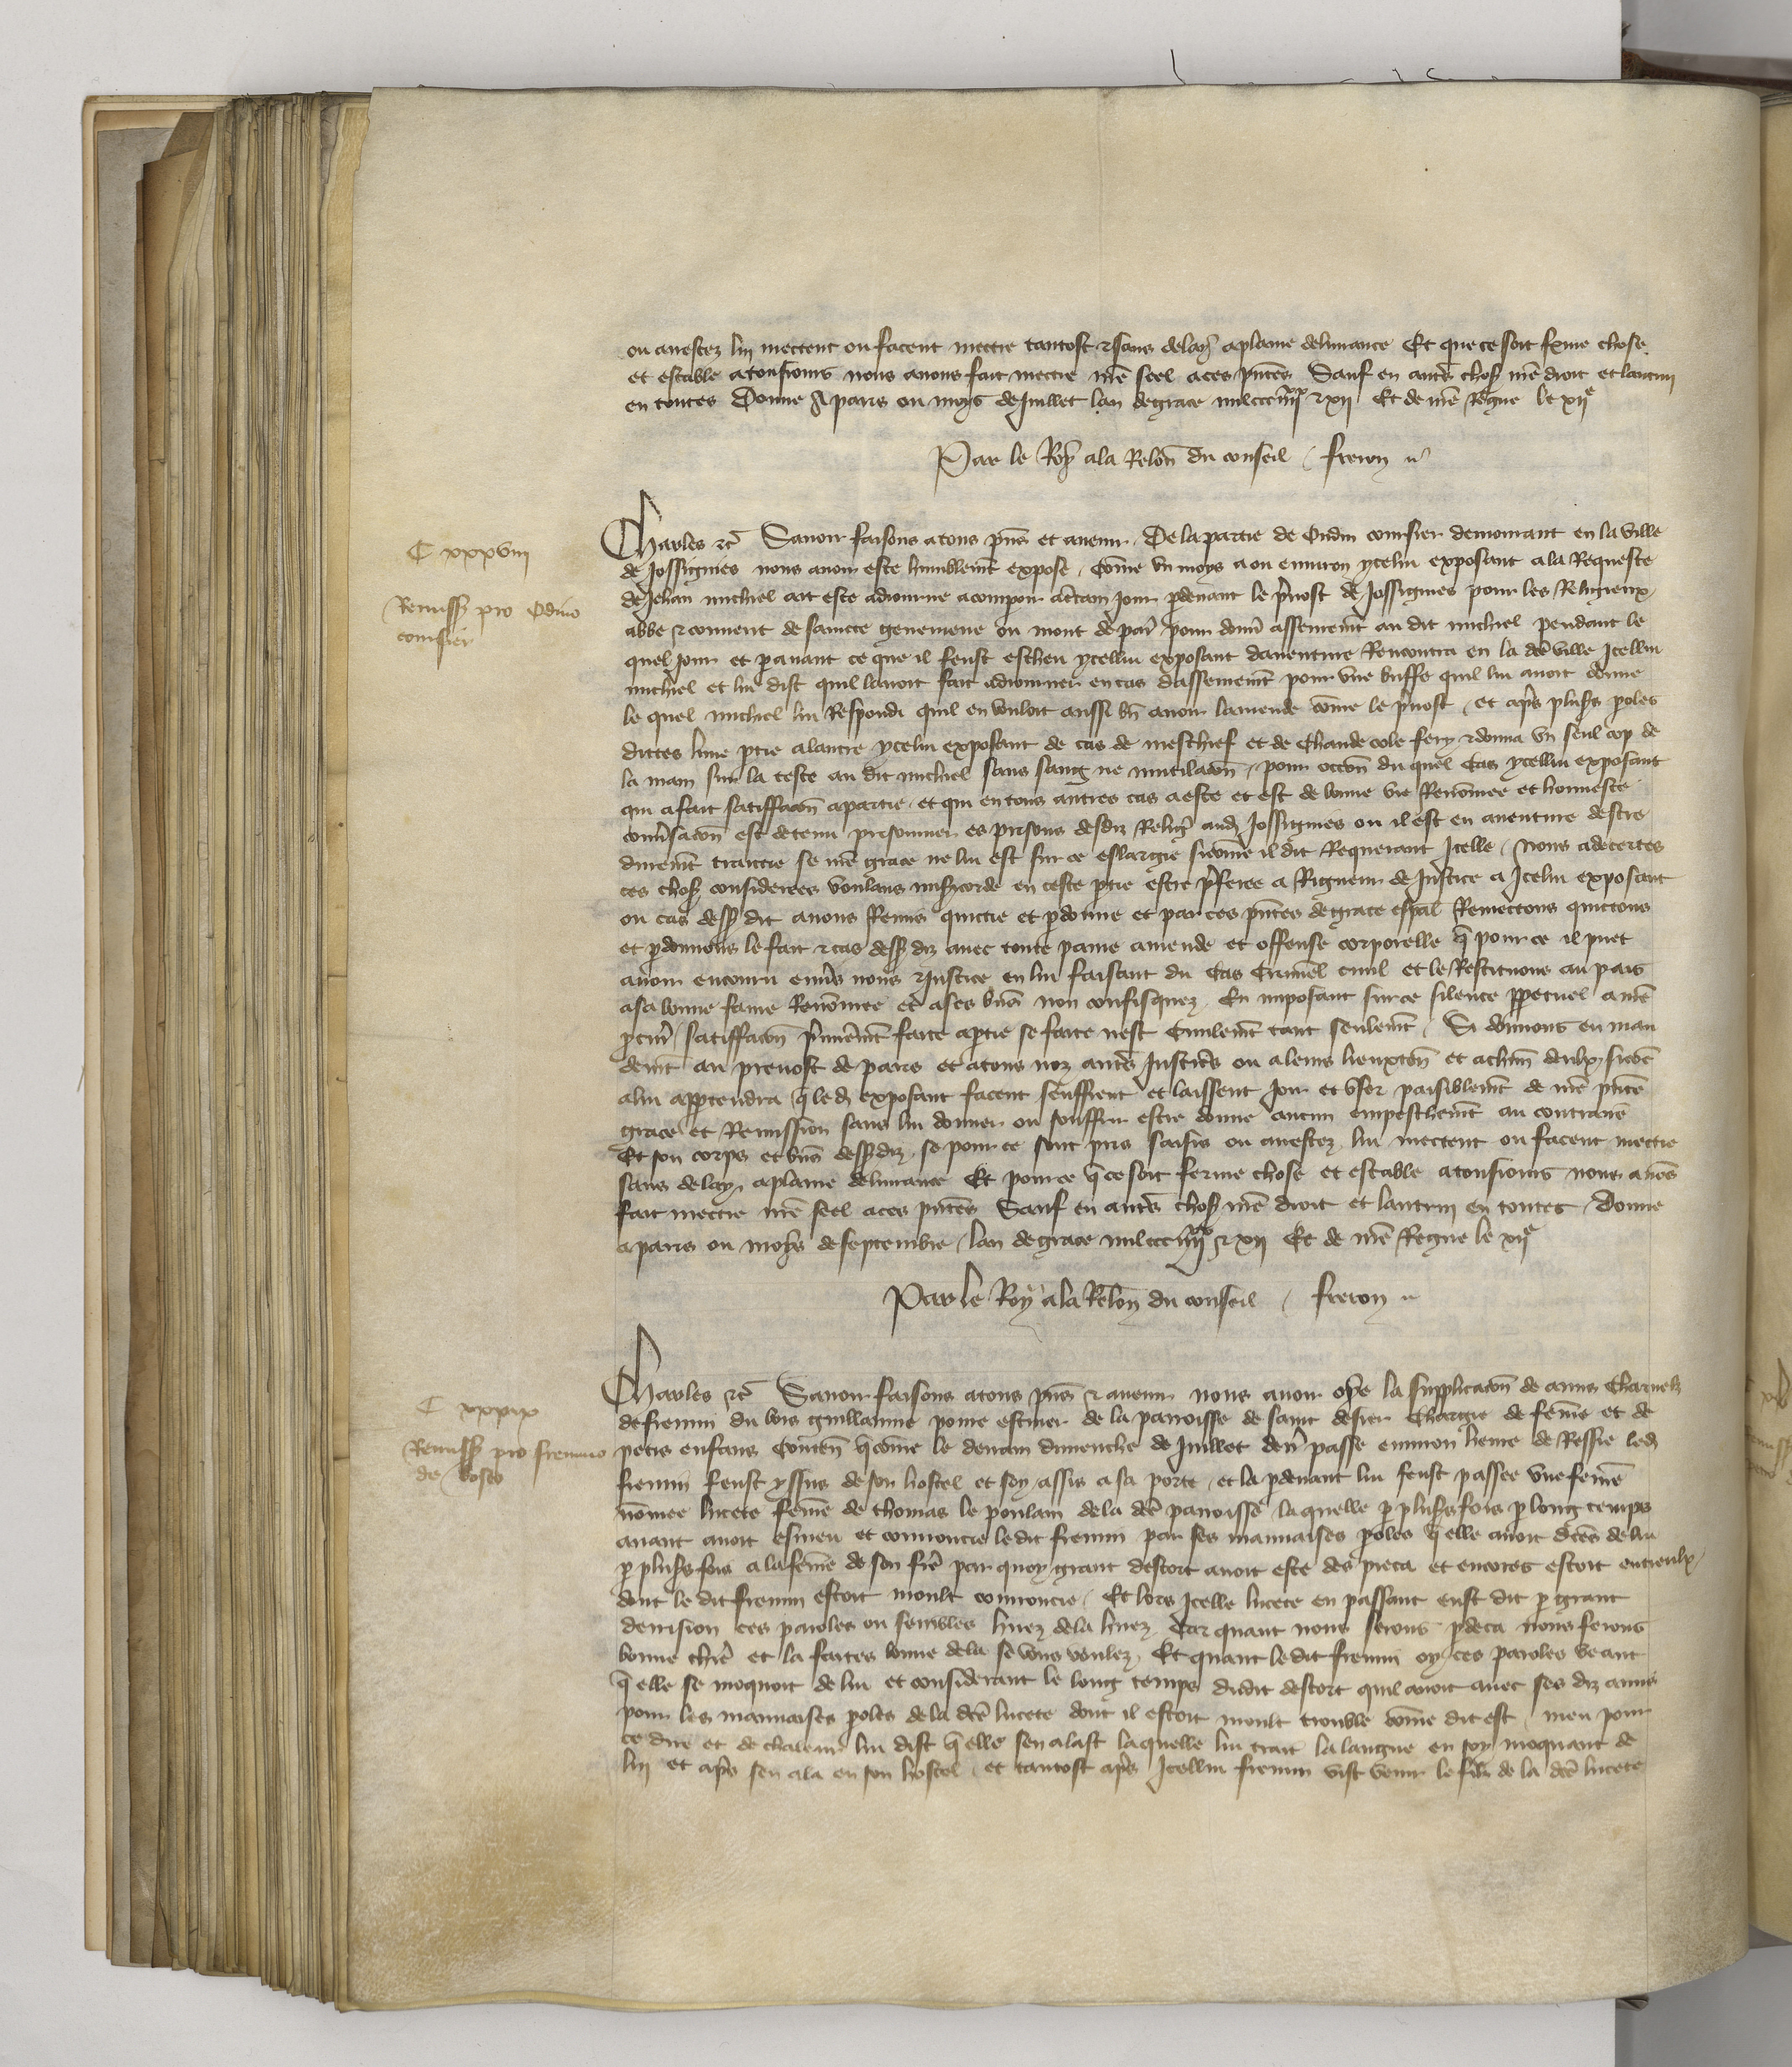 ou arrestez luy mectent ou facent mectre tantost et sans delay a plaine delivrance Et que ce soit ferme chose
et estable a tousiours nous avons fait mectre nre seel a ces pntes Sauf en autres choses nre droit et lautruy
en toutes Donne A paris ou mois de Juillet lan de grace mil ccc iiiixx et xii Et de nre Regne le xiie
Par le Roy a la Relon du conseil / freron
C xxxviii
Remissio pro Odino
comsier
Charles etc Savoir faisons a tous pns et avenir De la partie de Oudin comsier demourant en la ville
de Jossigines nous avoir este humblement expose / Come un moys a ou environ ycelui exposant a la Requeste
de Jehan michiel ait este adiourne a comparoir a certain jour par devant le prevost de Jossigines pour les Religieux
abbe et couvent de saincte genevieve ou mont de paris pour donner asseurement au dit michiel pendant le
quel jour et paravant ce que il feust escheu ycellui exposant daventure Rencontra en la dce ville Icellui
michiel et lui dist quil lavoit fait adiourner en cas dasseurement pour une buffe quil lui avoit donne
le quel michiel lui Respondi quil en vouloit aussi bn avoir lamende come le prevost / et apres plusrs poles
dittes lune ptie a lautre ycelui exposant de cas de meschief et de chaude cole fery et donna un seul cop de
la main sur la teste au dit michiel sans sang ne mutilacon / pour occon du quel cas ycellui exposant
qui a fait satiffacon a partie et qui en tous autres cas a este et est de bonne vie Renommee et honneste
conversacon est detenu prisonnier es prisons desdiz Religieux audit Jossigines ou il est en aventure destre
durement traictie se nre grace ne lui est sur ce eslargie sicome il dit Requerant Icelle / Nous adecertes
ces choses considerees voulans misericorde en ceste ptie estre preferee a Rigueur de Justice a Icelui exposant
ou cas dessus dit avons Remis quictie et pdonne et par ces pntes de grace espal Remectons quictons
et pdonnons le fait et cas dessus diz avec toute paine amende et offense corporelle que pour ce il puet
avoir encouru envers nous et Justice en lui faisant du cas criminel civil et le Restituons au pais
a sa bonne fame Renommee et a ses biens non confisquez / En imposant sur ce silence ppetuel a nre
pcur / satiffacon premierement faite a ptie se faite nest civilement tant seulement / Si donnons en man
dement au prevost de paris et a tous noz autres Justiciers ou a leurs lieuxten et a chun deulx / sicoe
a lui appartendra que ledit exposant facent seuffrent et laissent Joir et user paisiblement de nre pnte
grace et Remission sans lui donner ou souffrir estre donne aucun empeschement au contraire
Et son corps et biens dessus diz / se pour ce sont pris saisis ou arrestez lui mectent ou facent mectre
sans delay a plaine delivrance Et pour ce que ce soit ferme chose et estable a tousiours nous avons
fait mectre nre seel a ces pntes Sauf en autres choses nre droit et lautruy en toutes / Donne
a paris ou moys de septembre lan de grace mil ccc iiiixx et xii Et de nre Regne le xiie
Par le Roy a la Relon du conseil / freron
C xxxix
Remissio pro firmino
de bosco
Charles etc Savoir faisons a tous pns et avenir nous avoir oye la supplicacon de amis charnelz
de fremin du bois guillaume povre estuier de la parroisse de saint desier chargie de feme et de
petis enfans contenant que come le derrain dimenche de Juillet dernier passe environ heure de Ressie ledit
fremin feust yssus de son hostel et soy assis a sa porte / et la pdevant lui feust passee une feme
nommee lucete feme de thomas le poulain de la dce parroisse la quelle par plusrs fois par long temps
avant avoit esmeu et courroucie le dit fremin par ses mauvaises poles que elle avoit dictes de lui
p plusrs fois a la feme de son fre par quoy grant descort avoit este des pieca et encores estoit entreulx
dont le dit fremin estoit moult courroucie / Et lors Icelle lucete en passant eust dit p grant
derision ces paroles ou sembles huez dela huez Car quant nous serons pdeca nous ferons
bonne chiere et la faites bonne dela se vous voulez / Et quant le dit fremin oy ces paroles veant
que elle se moquoit de lui et considerant le long temps dudit descort quil avoit avec ses diz amis
pour les mauvaises poles de la dce lucete dont il estoit moult trouble come dit est / meu pour
ce dire et de chaleur lui dist que elle sen alast laquelle lui trait la langue en soy moquant de
luy et apres sen ala en son hostel / et tantost apres Icellui fremin vist venir le filz de la dce lucete